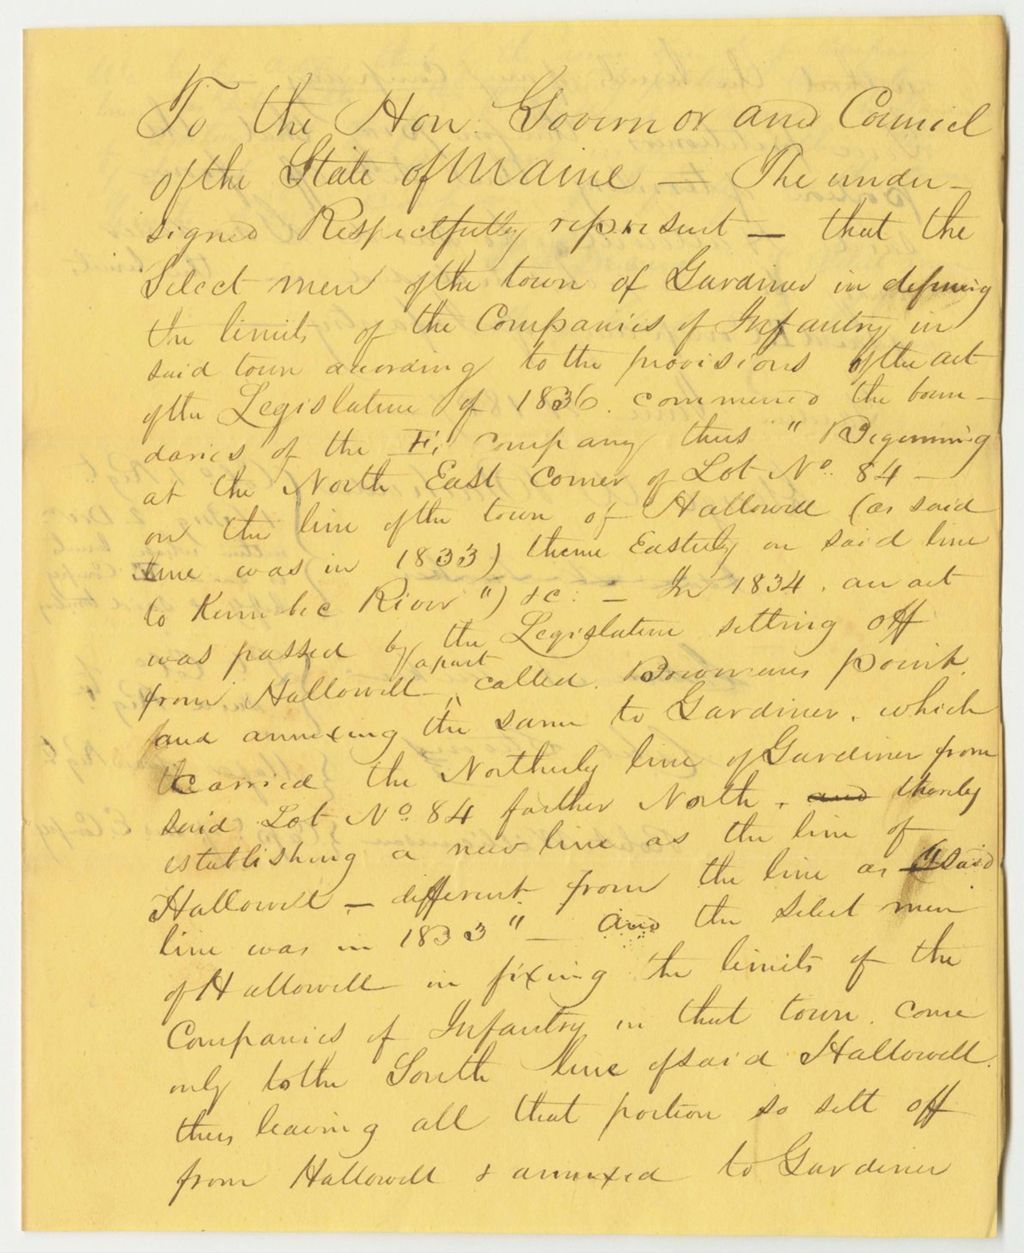 To the Hon. Governor and Council
of the State of Maine — The under-
signed Respectfully represent — that the
Select men of the town of Gardiner in defining
the limits of the Companies of Infantry in
said town according to the provisions of the act
of the Legislature of 1836. commenced the boun-
daries of the E, company thus " Beginning
at the North East Corner of Lot No. 84 —
on the line of the town of Hallowell (as said
line was in 1833) thence Easterly on said line
to Kennebec River ") &c. — In 1834. an act
was passed by the Legislature setting off
from Hallowell a part called. Bowmans point
and annexing the same to Gardiner. which
carried the Northerly line of Gardiner from
said Lot No. 84 farther North. and thereby
establishing a new line as the line of
Hallowell — different from the line as "said
line was in 1833" — and the select men
of Hallowell in fixing the limits of the
Companies of Infantry in that town. come
only to the South line of said Hallowell.
thus leaving all that portion so sett off
from Hallowell & annexed to Gardiner